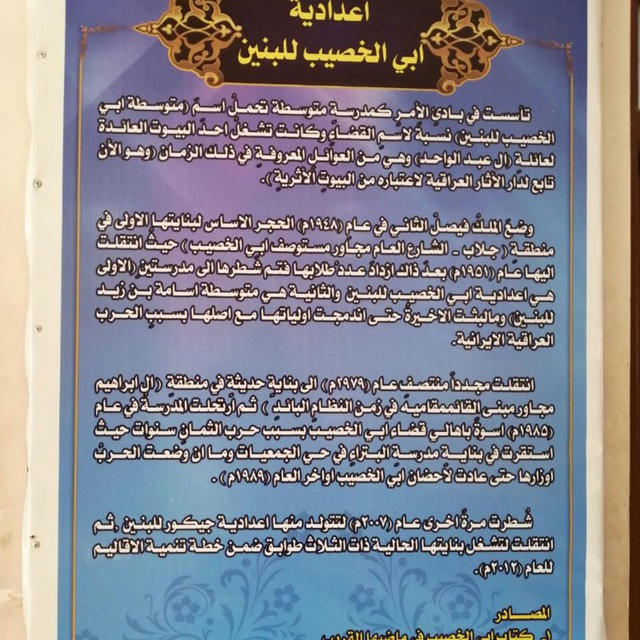 اعدادية
ابي الخصيب للبنين
تأسست في بادئ الأمر كمدرسة متوسطة تحمل اسم (متوسطة ابي
الخصيب للبنين) نسبة لاسم القضاء وكانت تشغل احد البيوت العائدة
لعائلة (ال عبد الواحد) وهي من العوائل المعروفة في ذلك الزمان (وهو الآن
تابع لدار الآثار العراقية لاعتباره من البيوت الأثرية).
وضع الملك فيصل الثاني في عام (١٩٤٨م) الحجر الاساس لبنايتها الاولى في
منطقة ( جلاب - الشارع العام مجاور مستوصف ابي الخصيب ) حيث انتقلت
اليها عام (١٩٥١م) بعد ذاك ازداد عدد طلابها فتم شطرها الى مدرستين (الاولى
هي اعدادية ابي الخصيب للبنين والثانية هي متوسطة اسامة بن زيد
للبنين) ومالبثت الاخيرة حتى اندمجت اولياتها مع اصلها بسبب الحرب
العراقية الايرانية.
انتقلت مجدداً منتصف عام (١٩٧٩م) الى بناية حديثة في منطقة (ال ابراهيم
مجاور مبنى القائممقامية في زمن النظام البائد ) ثم أرتحلت المدرسة في عام
(١٩٨٥م) اسوة باهالي قضاء ابي الخصيب بسبب حرب الثمان سنوات حيث
استقرت في بناية مدرسة البتراء في حي الجمعيات وما ان وضعت الحرب
اوزارها حتى عادت لأحضان ابي الخصيب اواخر العام (١٩٨٩م) .
شطرت مرة اخرى عام (٢٠٠٧م) لتتولد منها اعدادية جيكور للبنين ,ثم
انتقلت لتشغل بنايتها الحالية ذات الثلاث طوابق ضمن خطة تنمية الاقاليم
للعام (٢٠١٢م).
المصادر
كتاب ابي الخصيب في ماضيها القريب